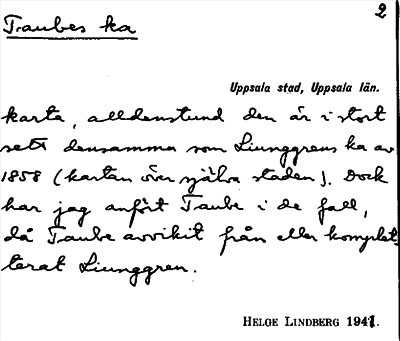 Taubes ka
2
Uppsala stad, Uppsala län.
karta, alldenstund den är i stort
sett densamma som Ljunggrens ka av
1858 (kartan över själva staden). Dock
har jag anfört Taube i de fall,
då Taube avvikit från eller komplet-
terat Ljunggren.
HELGE LINDBERG 1941.